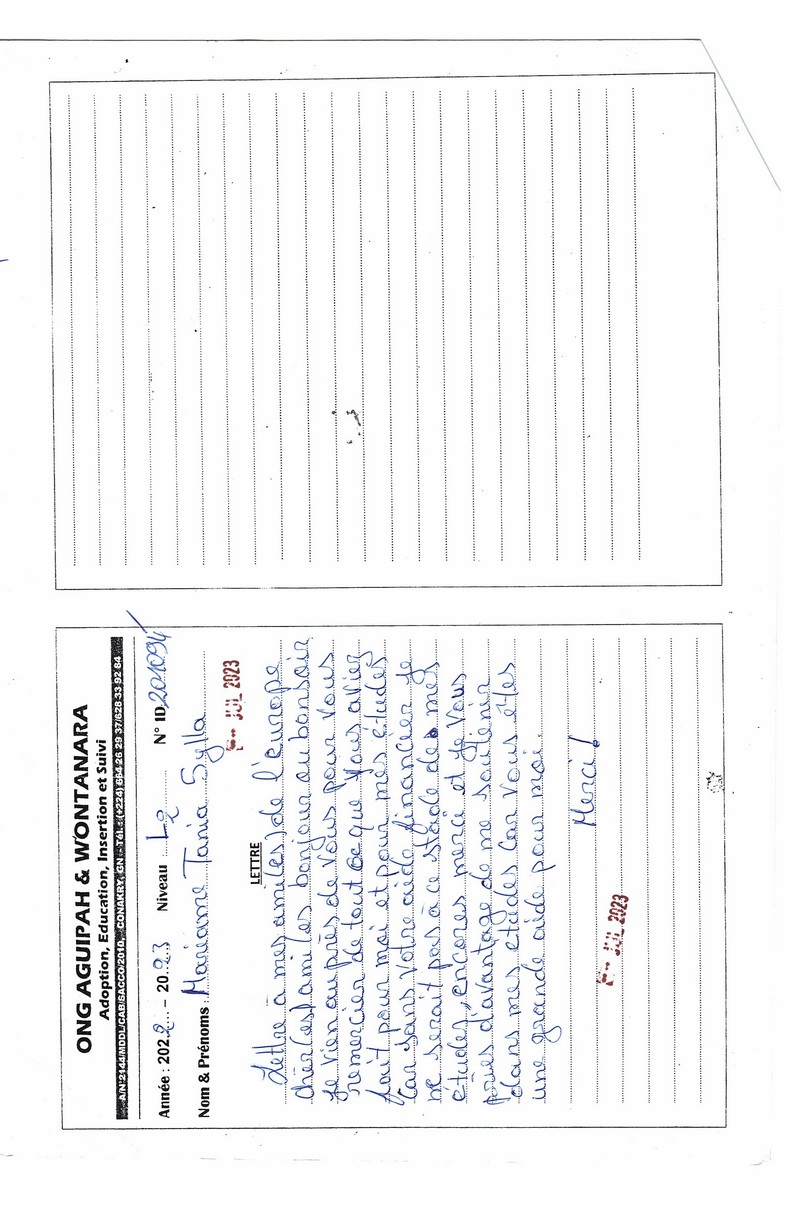 ONG AGUIPAH & WONTANARA
Adoption, Education, Insertion et Suivi
A/N°2144/MDDL/CAB/SACCO/2010, CONAKRY, GN - Tél.: (+224) 664 26 29 37/628 33 92 84
Année : 2022 - 2023 Niveau : L2 N° ID 201094
Nom & Prénoms : Mariame Tania Sylla
JUL 2023
LETTRE
Lettre à mes ami(es) de l'europe
chèr(es) ami(es bonjour ou bonsoir
je vien auprès de vous pour vous
remercier de tout ce que vous aviez
fait pour moi et pour mes études
Car sans votre aide financier je
ne serait pas à ce stade de mes
études, encores merci et je vous
pries d'avantage de me soutenir
dans mes études car vous êtes
une grande aide pour moi.
Merci !
JUL 2023